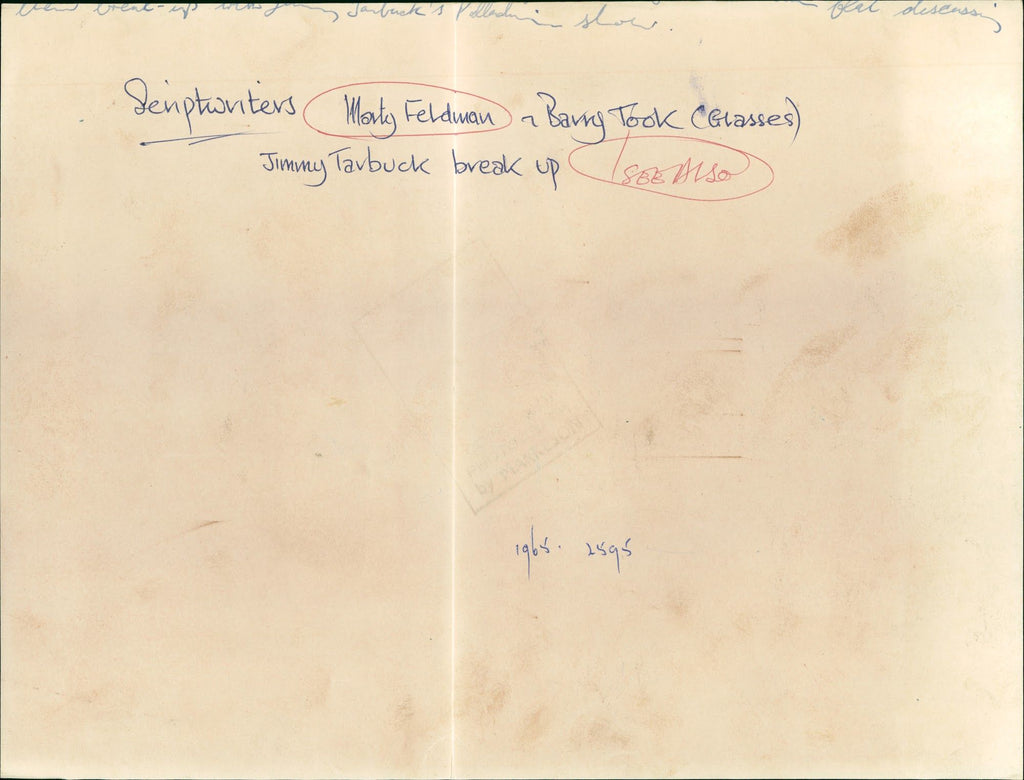 break-up with Jimmy Tarbuck's Palladium show. flat discussing
Scriptwriters Marty Feldman & Barry Took (Glasses)
Jimmy Tarbuck break up SEE ALSO
1965. 2595